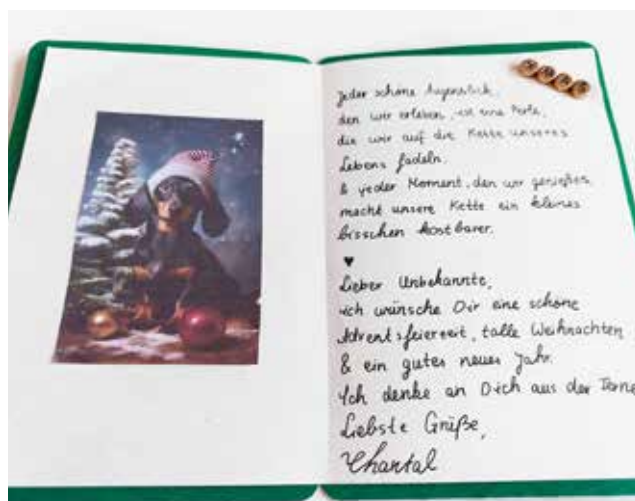 Jeder schöne Augenblick,
den wir erleben, ist eine Perle,
die wir auf die Kette unseres
Lebens fädeln.
& jeder Moment, den wir genießen,
macht unsere Kette ein kleines
bisschen kostbarer.
♥
Lieber Unbekannte,
ich wünsche Dir eine schöne
Adventsfeierzeit, tolle Weihnachten
& ein gutes neues Jahr.
Ich denke an Dich aus der Ferne
Liebste Grüße,
Chantal